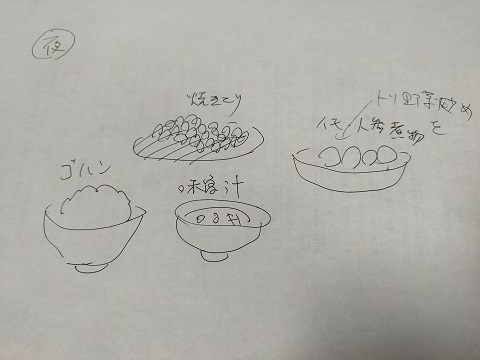 夜
焼きとり
トリ野菜炒め
人参煮物を
ゴハン
味噌汁